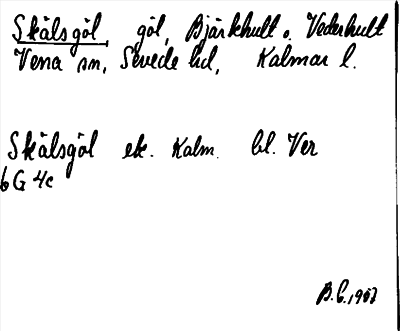 Skälsgöl, göl, Bjärkhult o. Vederhult
Vena sn, Sevede hd, Kalmar l.
Skälsgöl ek. Kalm. bl. Ver
6 G 4c